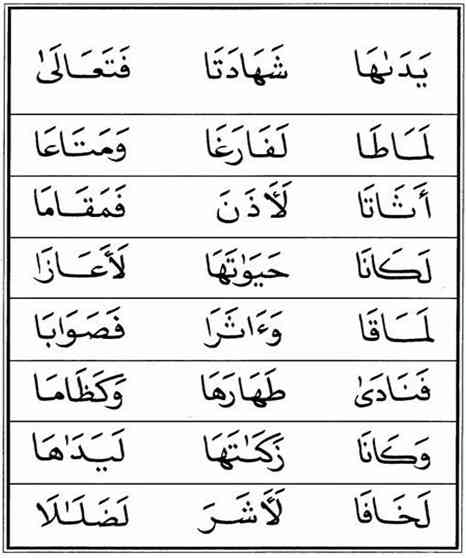 يَدَىٰهَا شَهَادَتَا فَتَعَـالَىٰ
لَمَـاطَا لَفَـارَغَا وَمَتَـاعَا
أَثَـاتَا لَأَذَنَ فَمَقَـامَا
لَكَانَا حَيَوٰتَهَا لَأَعَـازَا
لَمَـاقَا وَءَاثَرَا فَصَوَابَا
فَنَادَىٰ طَهَارَهَا وَكَظَامَا
وَكَانَا زَكَـٰتَهَا لَيَدَاهَا
لَخَـافَا لَأَشَـرَ لَضَلَـٰلَا